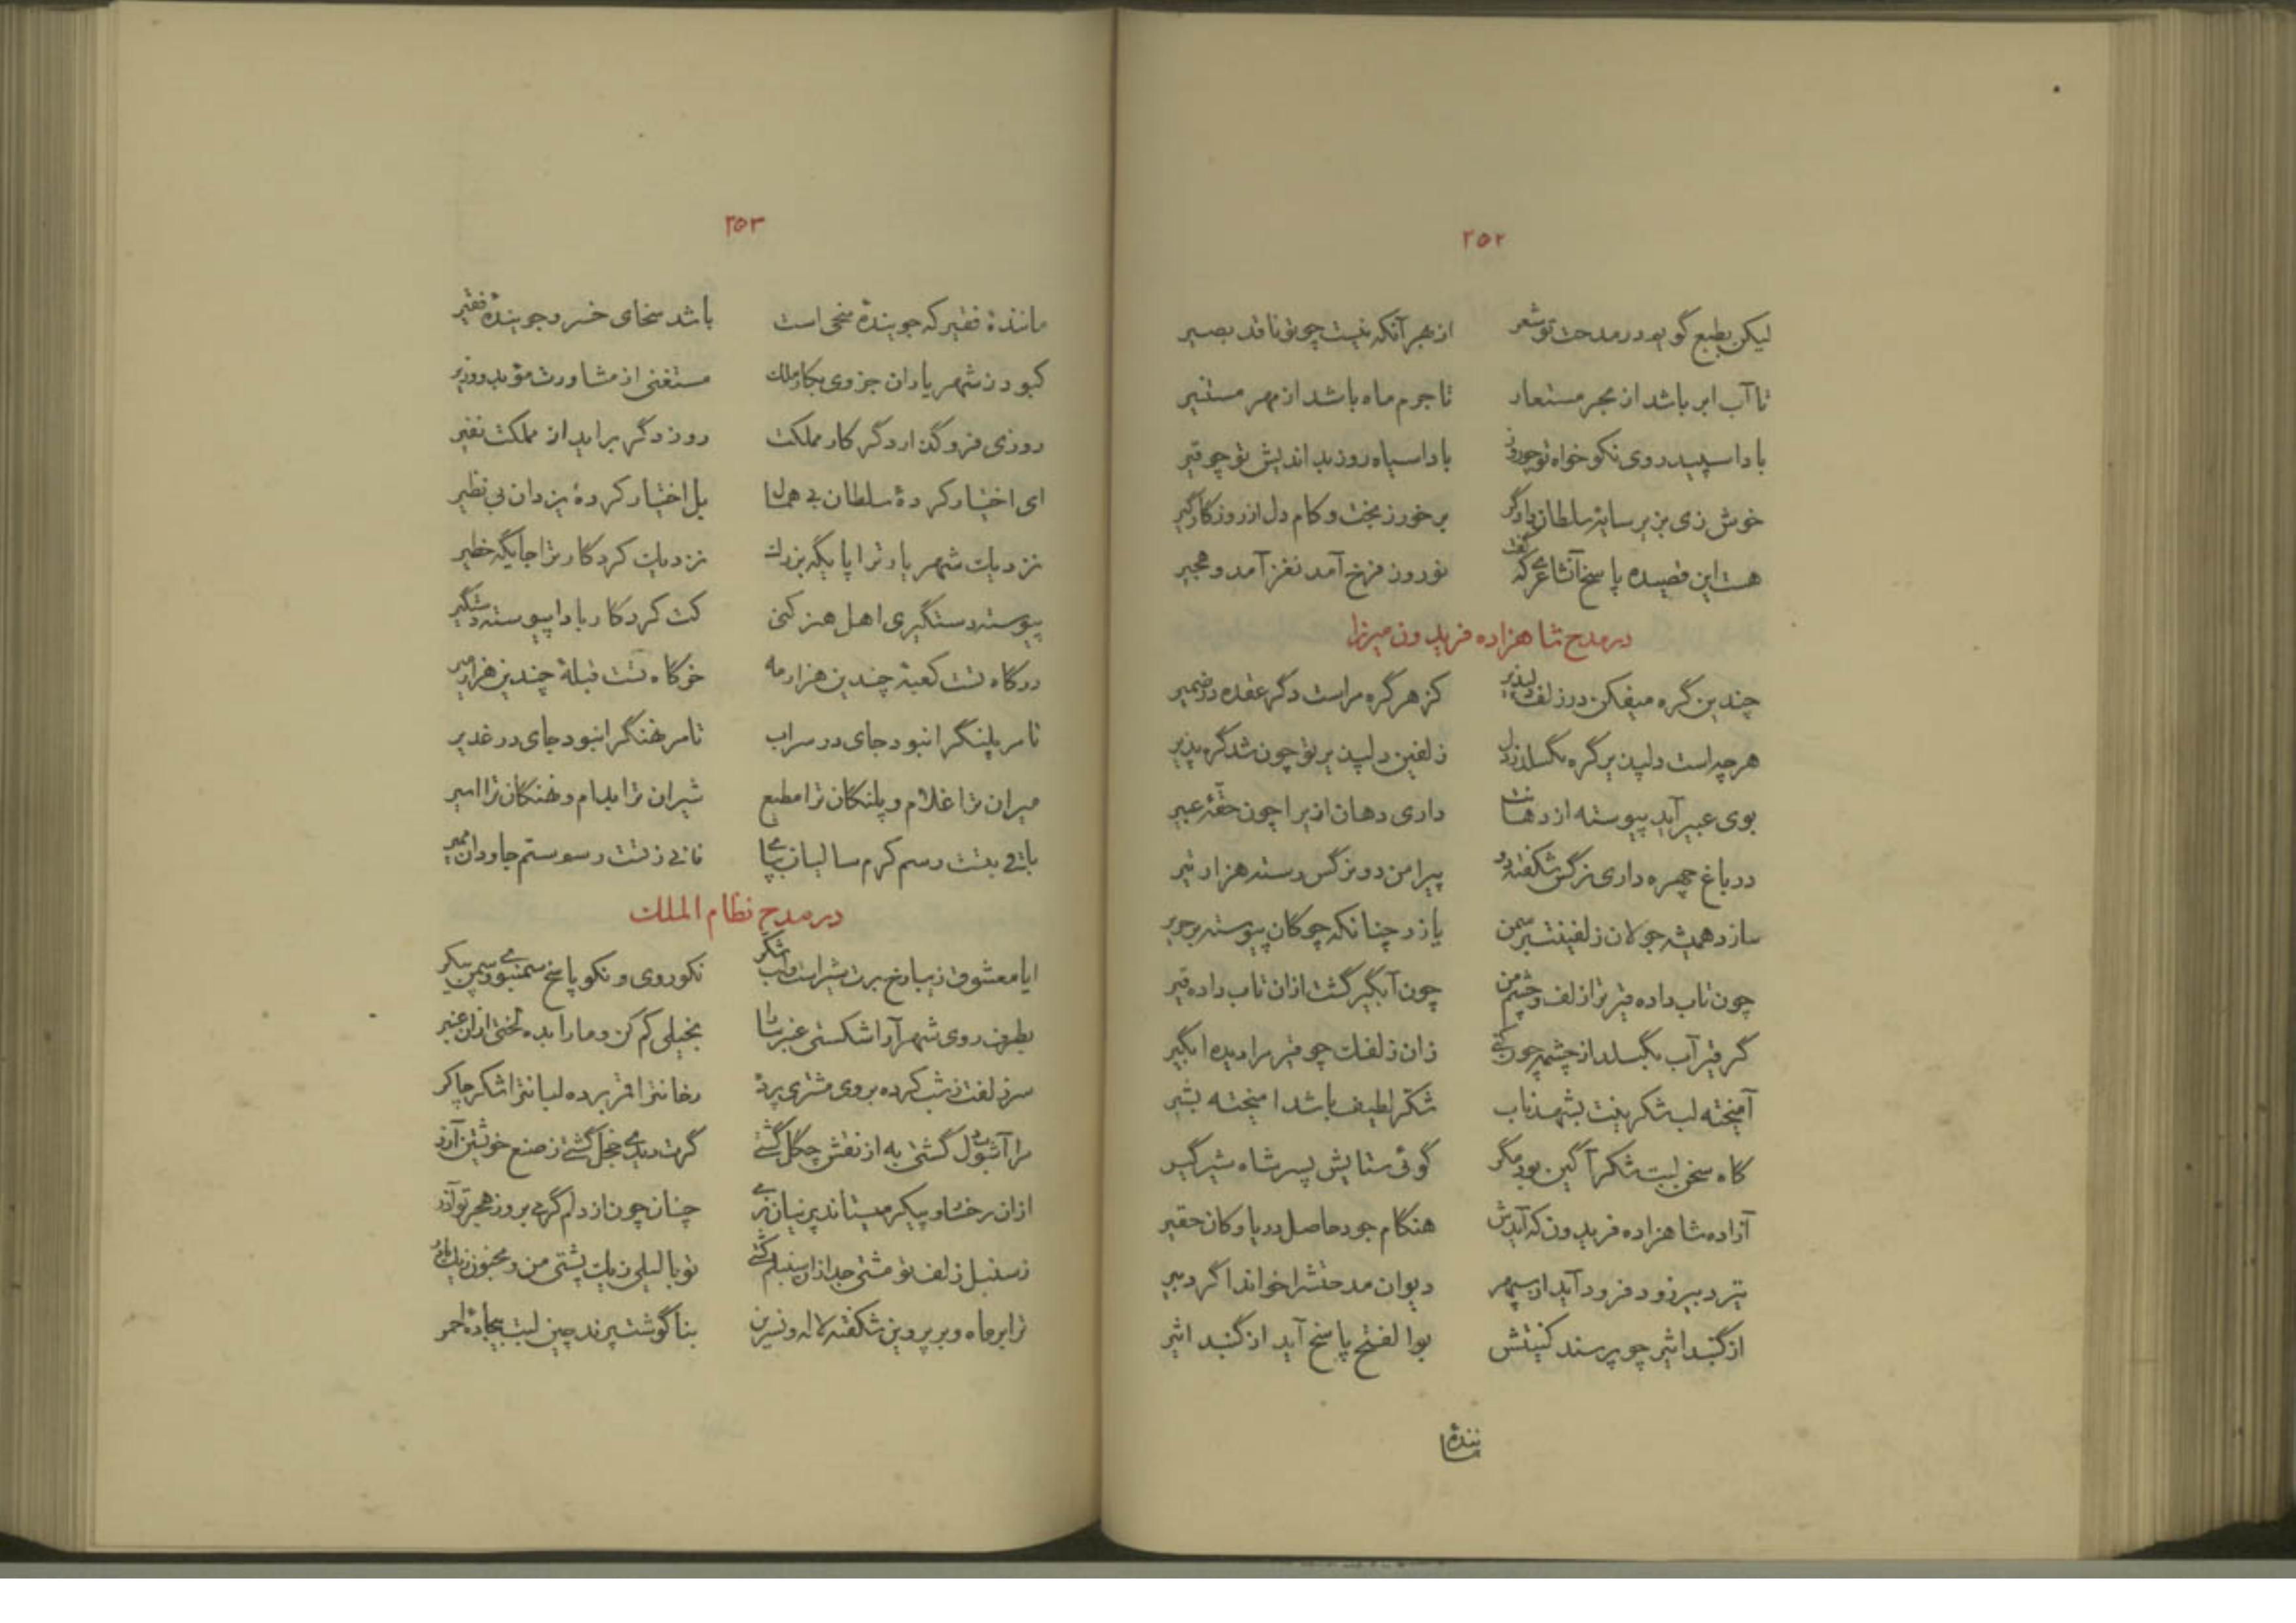 ۲۵۲
لیکن بطبع گویم در مدحت تو شعر از بهر آنکه نیست چو تو ناقد بصیر
تا آب ابر باشد از بحر مستعار تا جرم ماه باشد از مهر مستنیر
بادا سپید روی نکو خواه تو چو روز بادا سیاه روز بد اندیش تو چو قیر
خوش زی بزیر سایهٔ سلطان دادگر بر خور ز بخت و کام دل از روزگار گیر
هست این قصیده پاسخ آن شاعری که گفت نوروز فرخ آمد نغز آمد و هجیر
در مدح شاهزاده فریدون میرزا
چندین گره میفکن در زلف دلپذیر کز هر گره مراست دگر عقده در ضمیر
هر چه است دلپذیر گره بگسلد ز دل زلفین دلپذیر تو چون شد گره پذیر
بوی عبیر آید پیوسته از دهانت داری دهان ازیرا چون حقهٔ عبیر
در باغ چهره داری نرگس شکفته دو پیرامن دو نرگس رسته هزار تیر
سازد همیشه جولان زلفینت بر سمن یازد چنانکه چوگان پیوسته بر حریر
چون تاب داده قیر تر از لف و چشم من چون آبگیر گشت ازان تاب داده قیر
گر قیر آب بگسلد از چشمه چون کنی زان زلفک چو قیر مرا دیده ابگیر
آمیخته لب شکرینت بشهد ناب شکر لطیف باشد امیخته بشیر
گاه سخن لبت شکر آگین بود مگر گوئی ستایش پسر شاه شیر گیر
آزاده شاهزاده فریدون که آیدش هنگام جود حاصل دریا و کان حقیر
تیر دبیر زود فرود آید از سپهر دیوان مدحتش را خواند اگر دبیر
از گنبد اثیر چو پرسند کنیتش بوالفتح پاسخ آید از گنبد اثیر
۲۵۳
مانندهٔ فقیر که جویندهٔ سخی است باشد سخای خسرو جویندهٔ فقیر
کبود ز شهریاران جز وی بکار ملک مستغنی از مشاورت مؤبد و وزیر
روزی فرو گذارد گر کار مملکت روز دگر براید از مملکت نفیر
ای اختیار کردهٔ سلطان بی همال بل اختیار کردهٔ یزدان بی نظیر
نزدیک شهریار ترا پایگه بزرگ نزدیک کردگار ترا جایگه خطیر
پیوسته دستگیری اهل هنر کنی کت کردگار بادا پیوسته دستگیر
درگاه تست کعبهٔ چندین هزار مه خرگاه تست قبلهٔ چندین هزار میر
تا مر پلنگ را نبود جای در سراب تا مر نهنگ را نبود جای در غدیر
میران ترا غلام و پلنگان ترا مطیع شیران ترا بدام و نهنگان ترا اسیر
باقی بتست رسم کرم سالیان بپای فانی ز تست رسم ستم جاودان ممیر
در مدح نظام الملک
ایا معشوق زیبا رخ برت شیر است و لب شکر نکو روی و نکو پاسخ سمنبوی و سمن پیکر
بطرف روی شهر آرا شکستی عنبر سارا بخیلی کم کن و ما را بده لختی ازان عنبر
سر زلفت ز شب کرده بروی مشتری پرده رخانت را قمر برده لبانت را شکر چاکر
مرا آشوب دل گشتی به از نقش چگل گشتی گرت دیدی خجل گشتی ز صنع خویشتن آزر
ازان رخشاو پیکر میستاند پرنیان نرمی چنان چون از دلم گرمی بروز هجر تو آذر
ز سنبل زلف تو مشتی جدا زان سنبلم کشتی تو با لیلی ز یک پشتی من و مجنون ز یک مادر
ترا بر ماه و بر پروین شکفته لاله و نسرین بناگوشت پرند چین لبت بیجادهٔ احمر